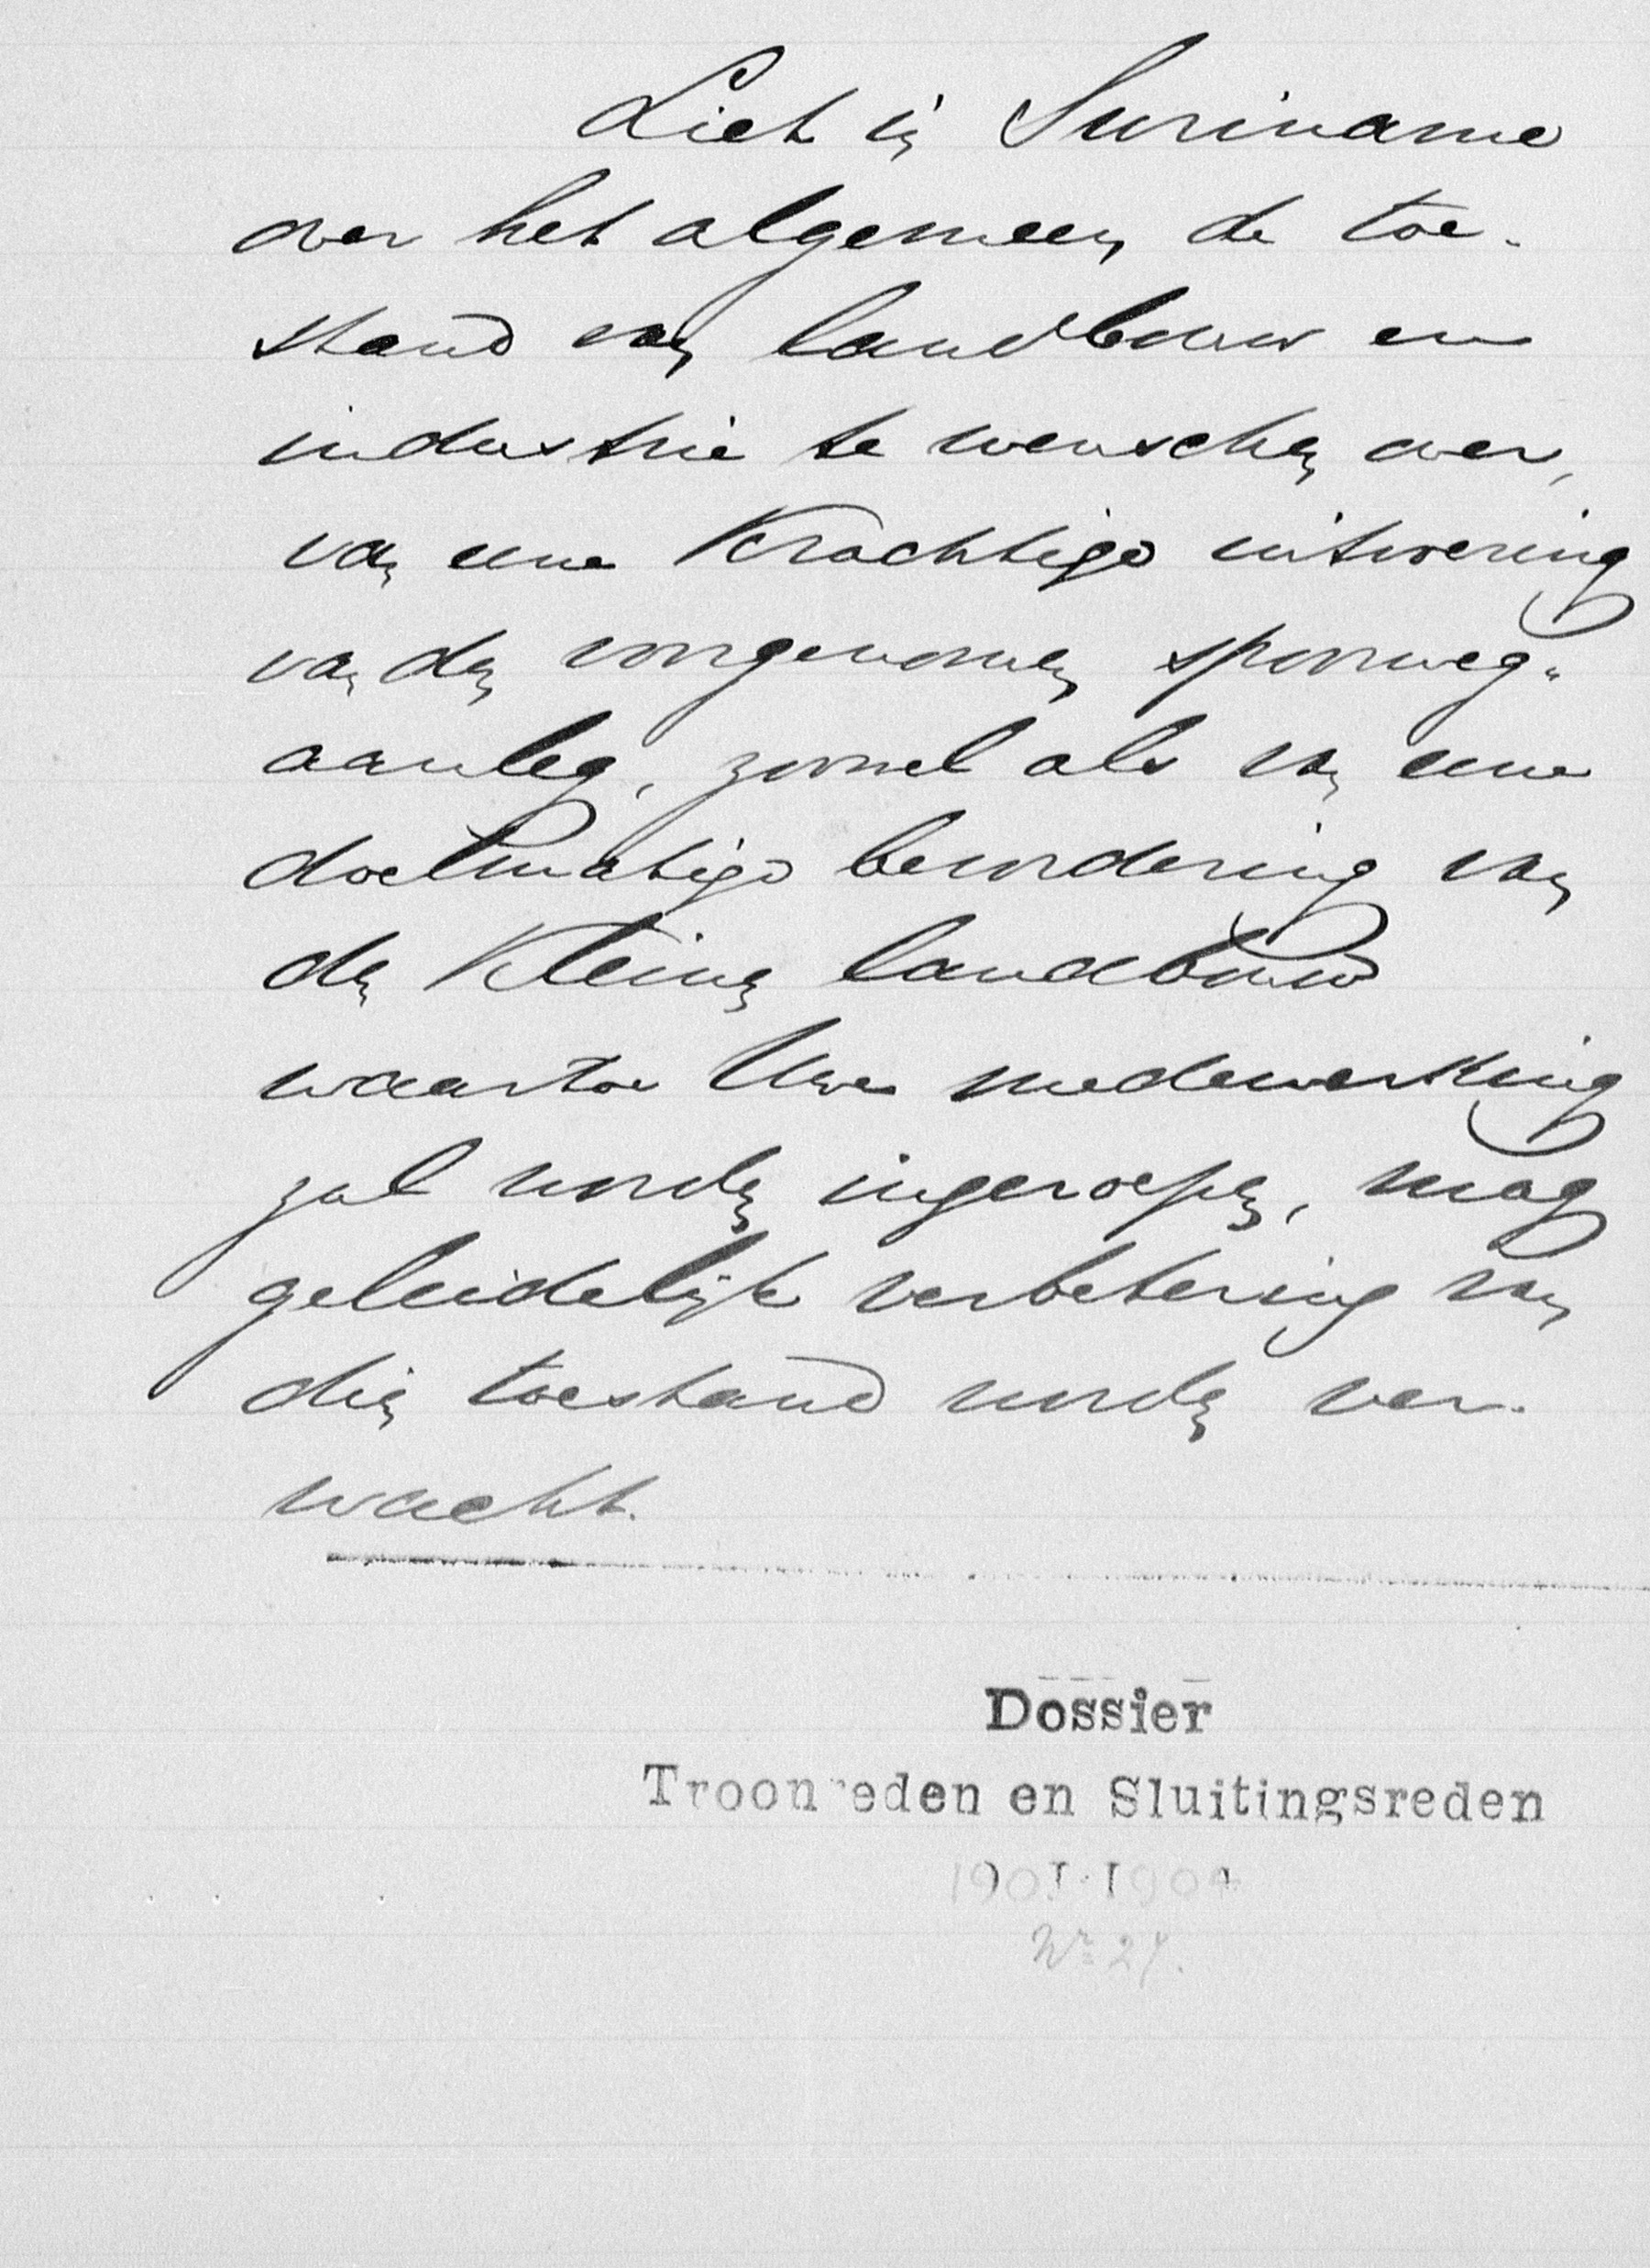 Liet in Suriname
over het algemeen de toe-
stand van landbouw en
industrie te wenschen over,
van eene krachtige uitvoering
van den voorgenomen spoorweg-
aanleg, zoowel als van eene
doelmatige bevordering van
den kleinen landbouw
waartoe Uwe medewerking
zal worden ingeroepen, mag
geleidelijke verbetering van
dien toestand worden ver-
wacht.
Dossier
Troonreden en Sluitingsreden
1901-1904
Nr